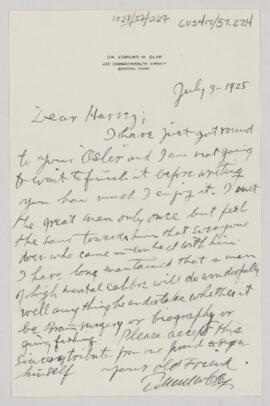 1028/52/227
CUS417/57.224
DR. EDMUND W. CLAP
COMMONWEALTH AVENUE
BOSTON, MASS.
July 3 - 1925
Dear Harvey;
I have just got round
to your "Osler" and I am not going
to wait to finish it before writing
you how much I enjoy it. I met
the great man only once but feel
the same towards him that everyone
does who came in contact with him.
I have long maintained that a man
of high mental calibre will do wonderfully
well anything he undertakes whether it
be brain surgery or biography or
Please accept this
sincere tribute from one proud to sign
himself your old Friend.